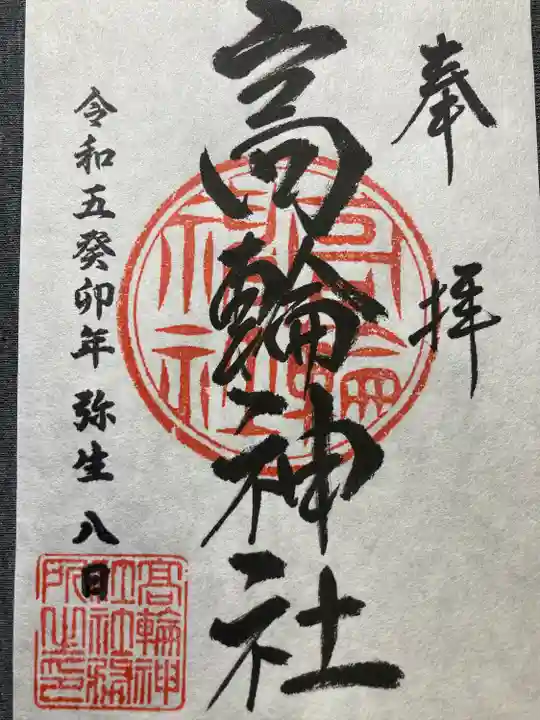 奉拝
高輪神社
令和五癸卯年 弥生 八日
高輪神社
高輪神社社務所之印